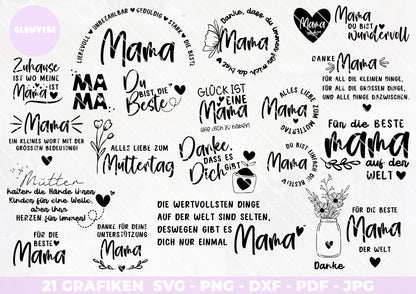 GLOWVYBE
LIEBSVOLL • UNBEZAHLBAR • GEDULDIG • STARK • DIE BESTE
Mama
Danke, dass du immer für mich da bist
Mama
Mama
DU BIST
wundervoll
Zuhause
IST WO MEINE
Mama
IST
MA
MA.
Du
BIST DIE
Beste
GLÜCK IST
EINE
Mama
wie dich zu haben!
ALLES LIEBE ZUM MUTTERTAG
Mama
DANKE
Mama
FÜR ALL DIE KLEINEN DINGE,
FÜR ALL DIE GROSSEN DINGE,
UND ALLE DINGE DAZWISCHEN.
Mama
EIN KLEINES WORT MIT DER
GRÖSSTEN BEDEUTUNG!
ALLES LIEBE ZUM
Muttertag
Danke,
DASS ES
Dich
GIBT
DU BIST EINFACH DIE BESTE!
Mama
Für die BESTE
mama
auf der
WELT
Mütter
halten die Hände ihrer
Kinder für eine Weile,
aber ihre
HERZEN für immer!
DIE WERTVOLLSTEN DINGE
AUF DER WELT SIND SELTEN,
DESWEGEN GIBT ES
DICH NUR EINMAL
Mama
FÜR DIE
BESTE
Mama
DANKE FÜR DEINE
UNTERSTÜTZUNG
Mama
Danke
FÜR DIE
BESTE
Mama
DER WELT
21 GRAFIKEN SVG - PNG - DXF - PDF - JPG